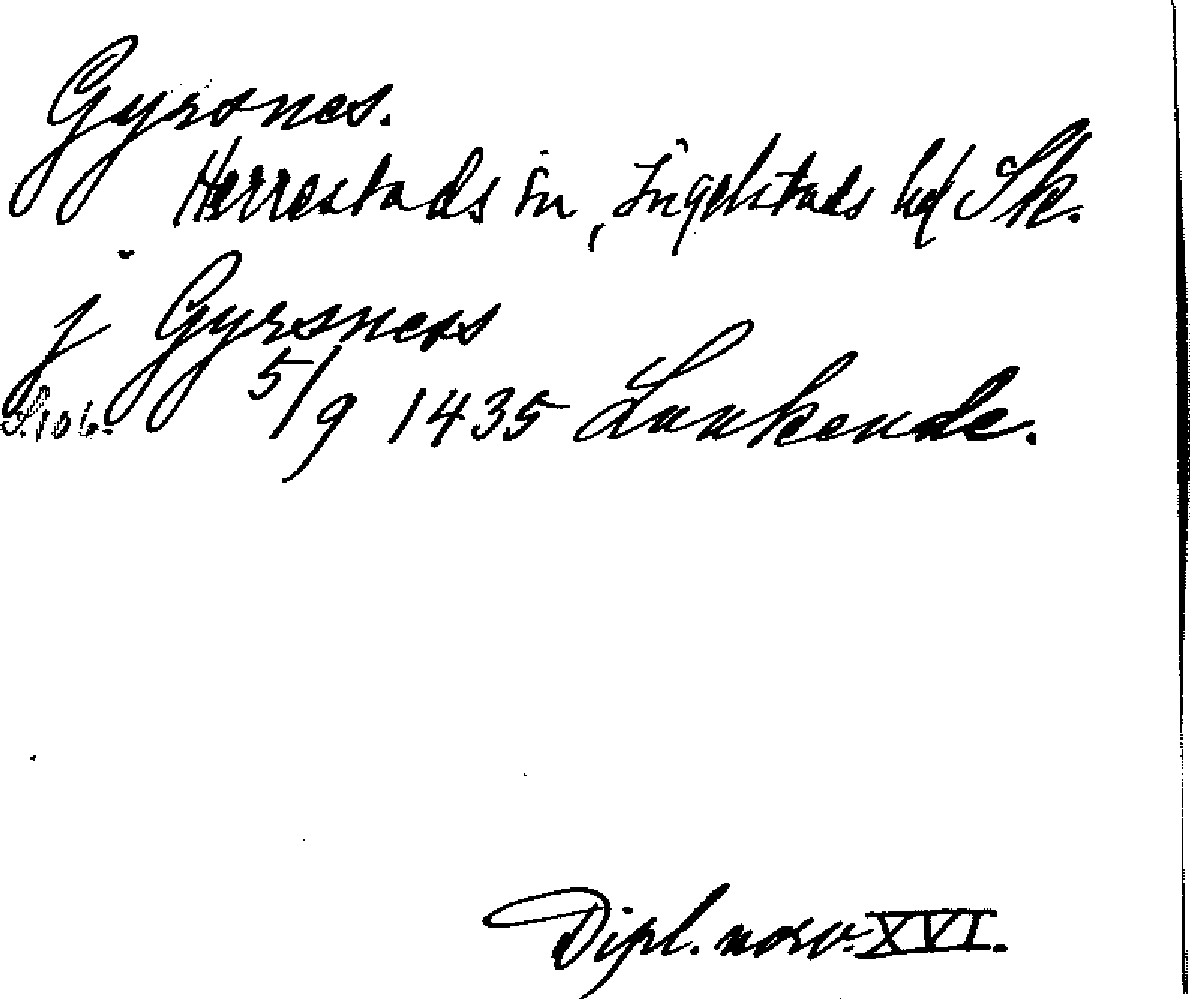 Gyrsnes.
Herrestads sn, Ingelstads hd Sk.
j Gyrsness
S. 106. 5/9 1435 Laukende.
Dipl. norv. XVI.